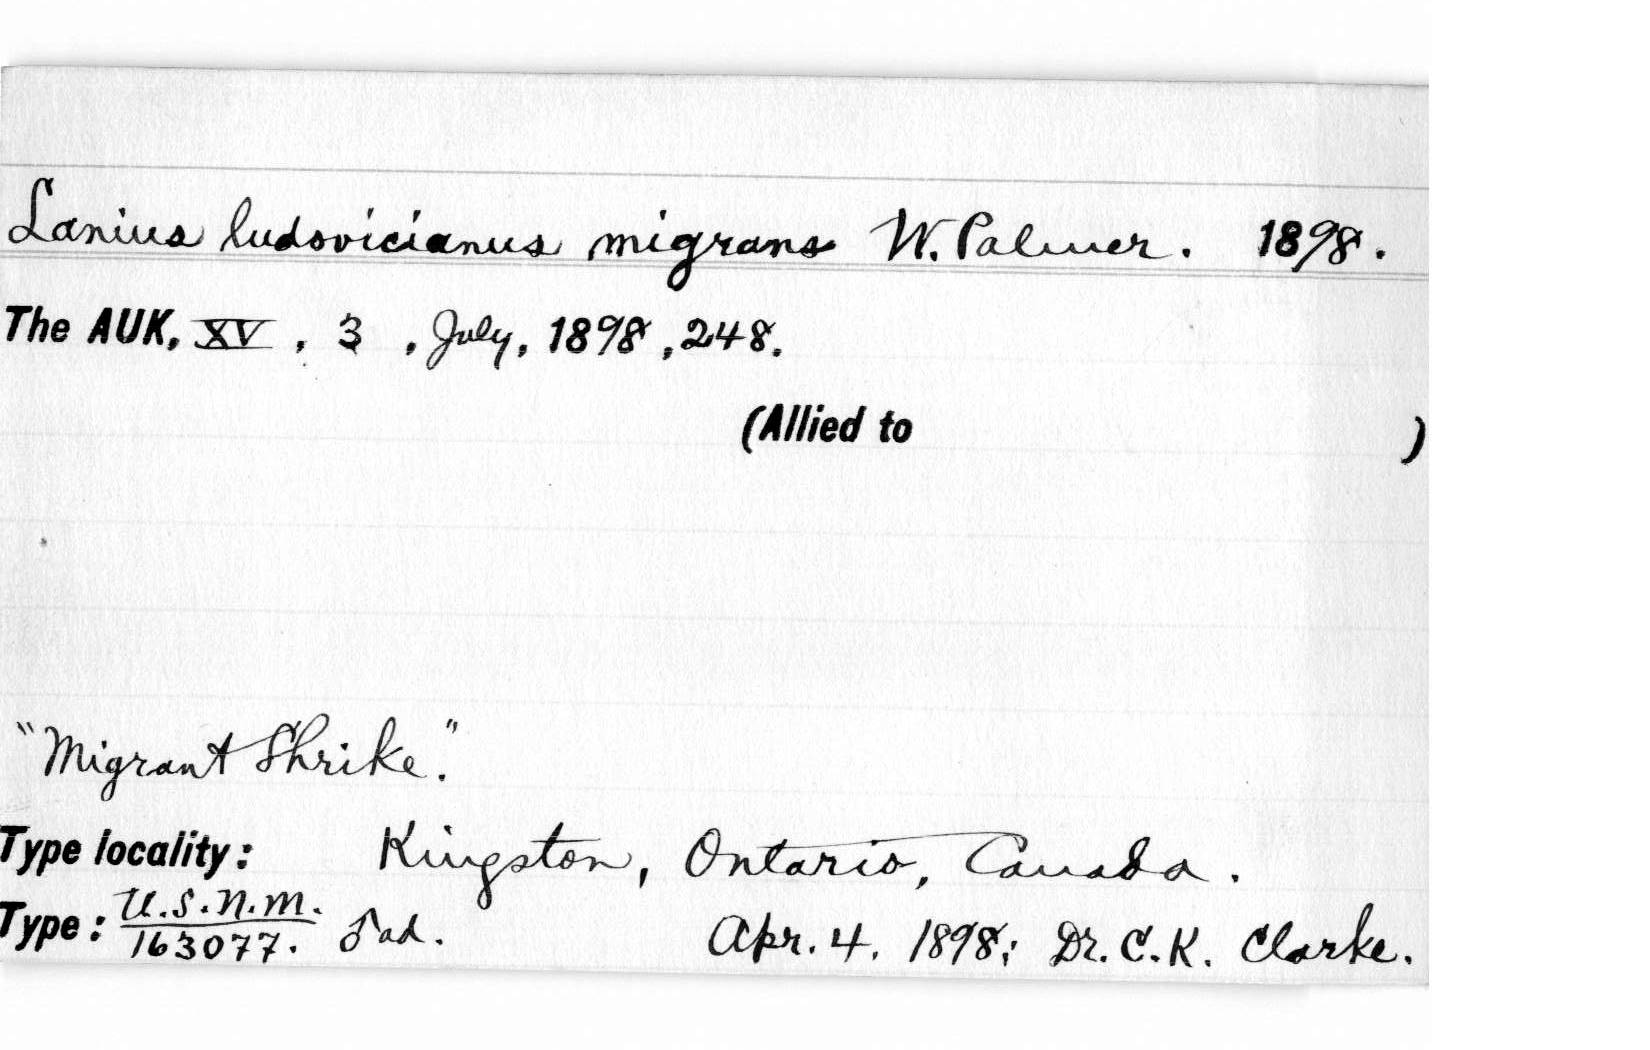 Lanius ludovicianus migrans W. Palmer. 1898.
The AUK, XV, 3, July, 1898, 248.
(Allied to )
"Migrant Shrike."
Type locality: Kingston, Ontario, Canada.
Type: U.S.N.M. 163077. ♂ ad. Apr. 4, 1898; Dr. C.K. Clarke.